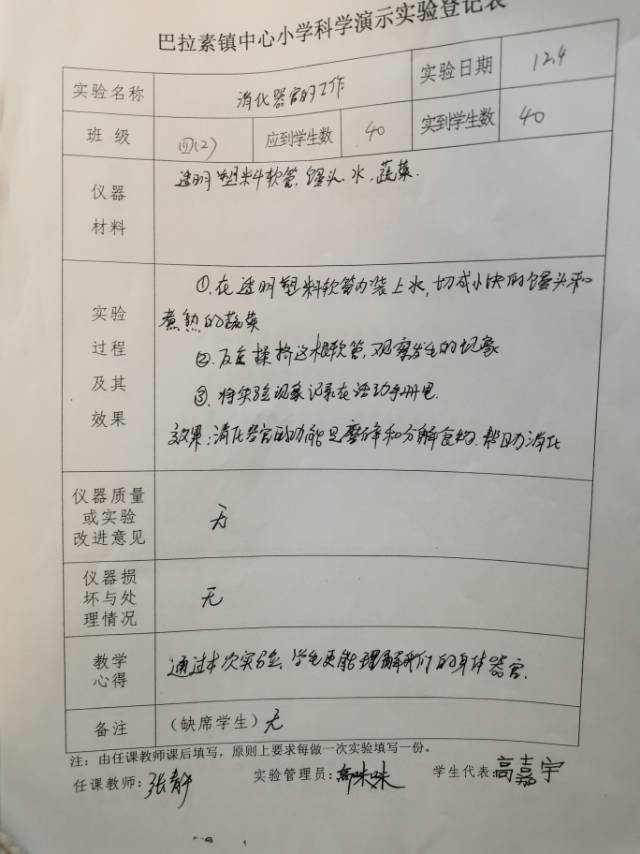 巴拉素镇中心小学科学演示实验登记表
实验名称 消化器官的工作 实验日期 12.4
班 级 四(2) 应到学生数 40 实到学生数 40
仪器
材料
透明塑料软管.馒头.水.蔬菜.
实验
过程
及其
效果
①.在透明塑料软管内装上水,切成小块的馒头和
煮熟的蔬菜
②.反复揉挤这根软管,观察发生的现象
③.将实验现象记录在活动手册里.
效果:消化器官的功能是磨碎和分解食物.帮助消化
仪器质量
或实验
改进意见
无
仪器损
坏与处
理情况
无
教学
心得
通过本次实验、学生更能理解我们的身体器官.
备注 (缺席学生)无
注:由任课教师课后填写,原则上要求每做一次实验填写一份。
任课教师:张静 实验管理员:高咪咪 学生代表:高嘉宇